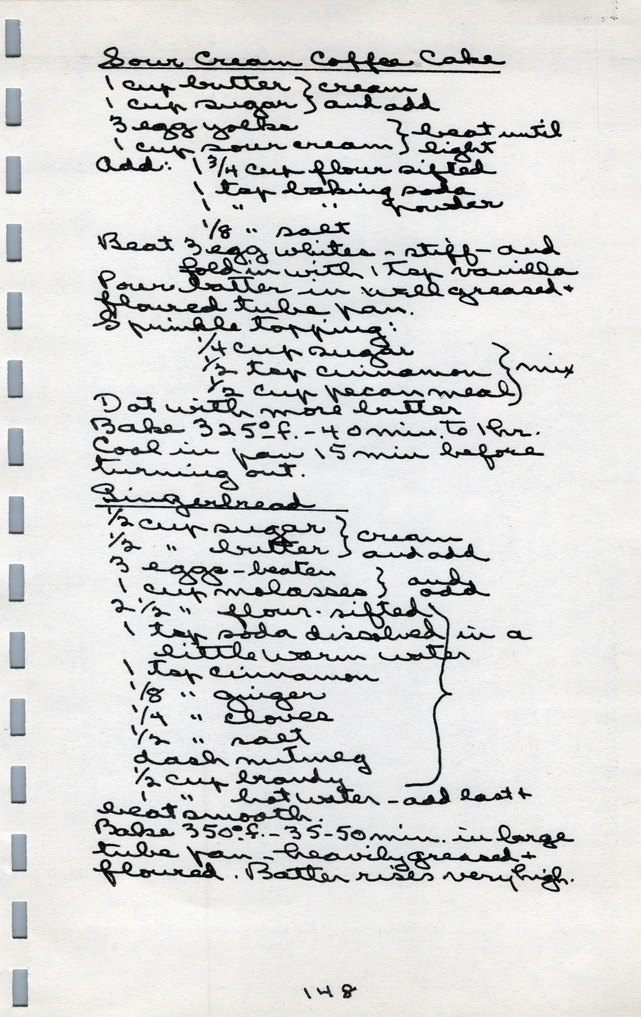 Sour Cream Coffee Cake
1 cup butter } cream
1 cup sugar } and add
3 egg yolks } beat until
1 cup sour cream } light
Add: 1 3/4 cup flour sifted
1 tsp baking soda
1 " " powder
1/8 " salt
Beat 3 egg whites - stiff - and
fold in with 1 tsp vanilla
Pour batter in well greased +
floured tube pan.
Sprinkle topping:
1/4 cup sugar
1/2 tsp cinnamon } mix
1/2 cup pecan meal
Dot with more butter
Bake 325° f. - 40 min. to 1 hr.
Cool in pan 15 min before
turning out.
Gingerbread
1/2 cup sugar } cream
1/2 " butter } and add
3 eggs - beaten } and
1 cup molasses } add
2 1/2 " flour - sifted
1 tsp soda dissolved in a
little warm water
1 tsp cinnamon
1/8 " ginger
1/4 " cloves
1/2 " salt
dash nutmeg
1/2 cup brandy
1 " hot water - add last +
beat smooth.
Bake 350° f. - 35-50 min. in large
tube pan - heavily greased +
floured. Batter rises very high.
148